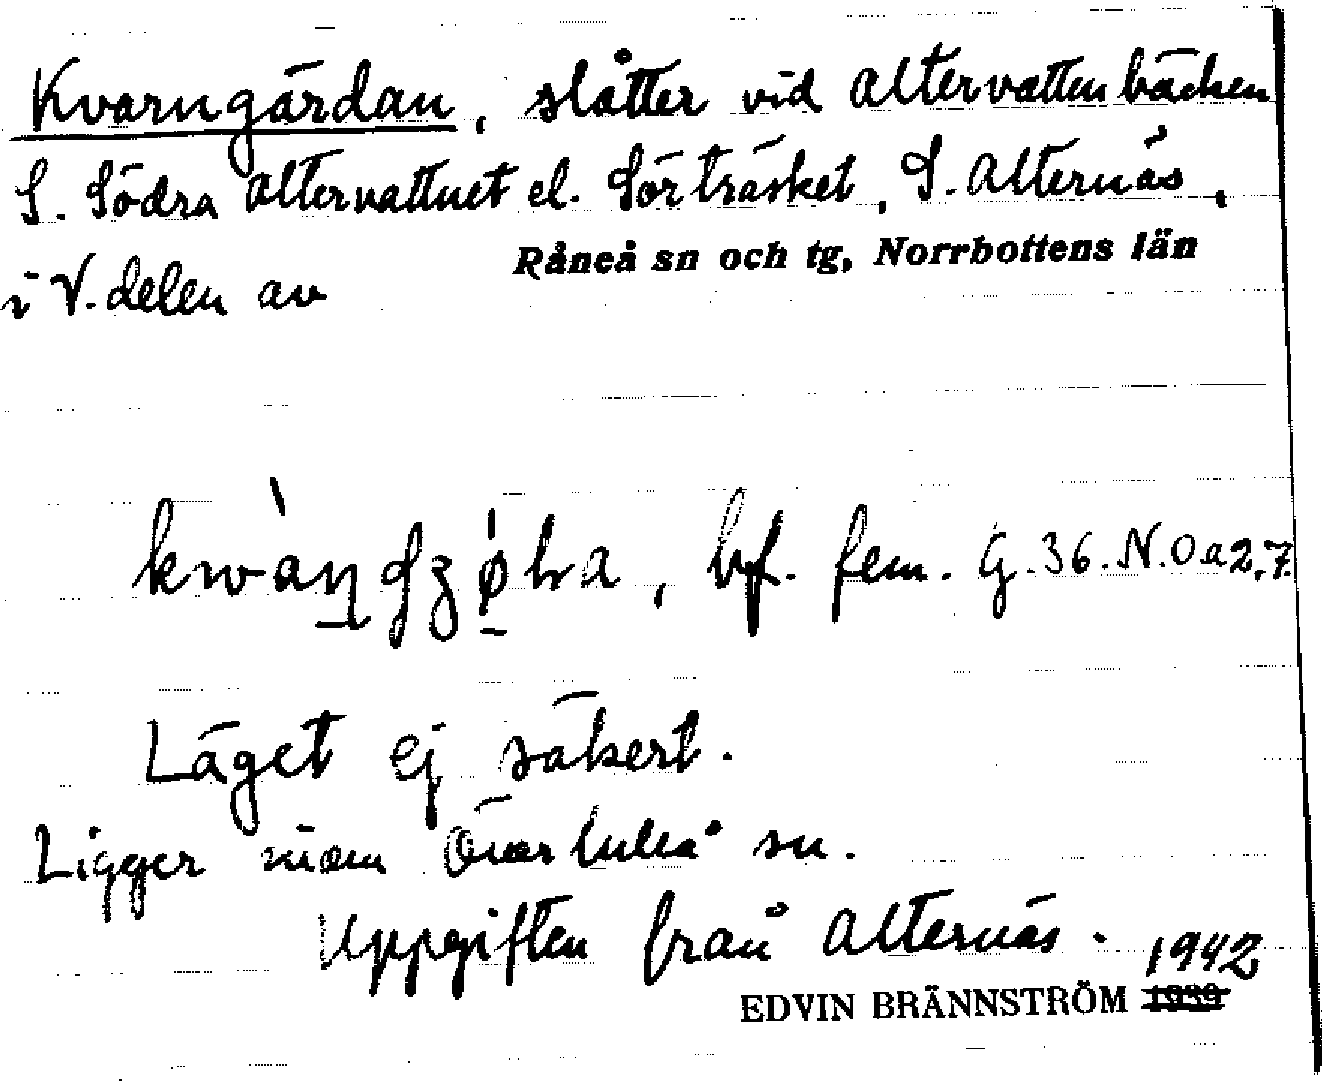 Kvarngärdan, slåtter vid Altervattenbäcken
S. Södra Altervattnet el. Sörträsket, S. Alternäs,
i V. delen av Råneå sn och tg, Norrbottens län
bf. fem. G.36.N.Oa2,7.
Läget ej säkert.
Ligger inom Överluleå sn.
Uppgiften från Alternäs.
EDVIN BRÄNNSTRÖM 1942
1939